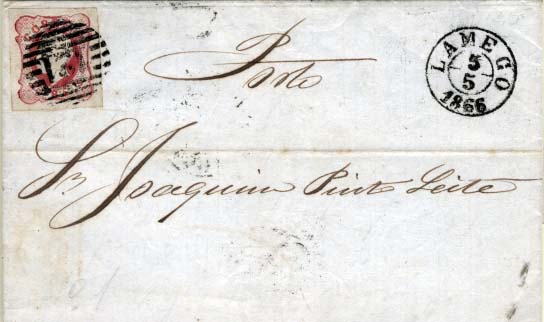 Porto
LAMEGO
5
5
1866
Sr Joaquim Pinto Leite